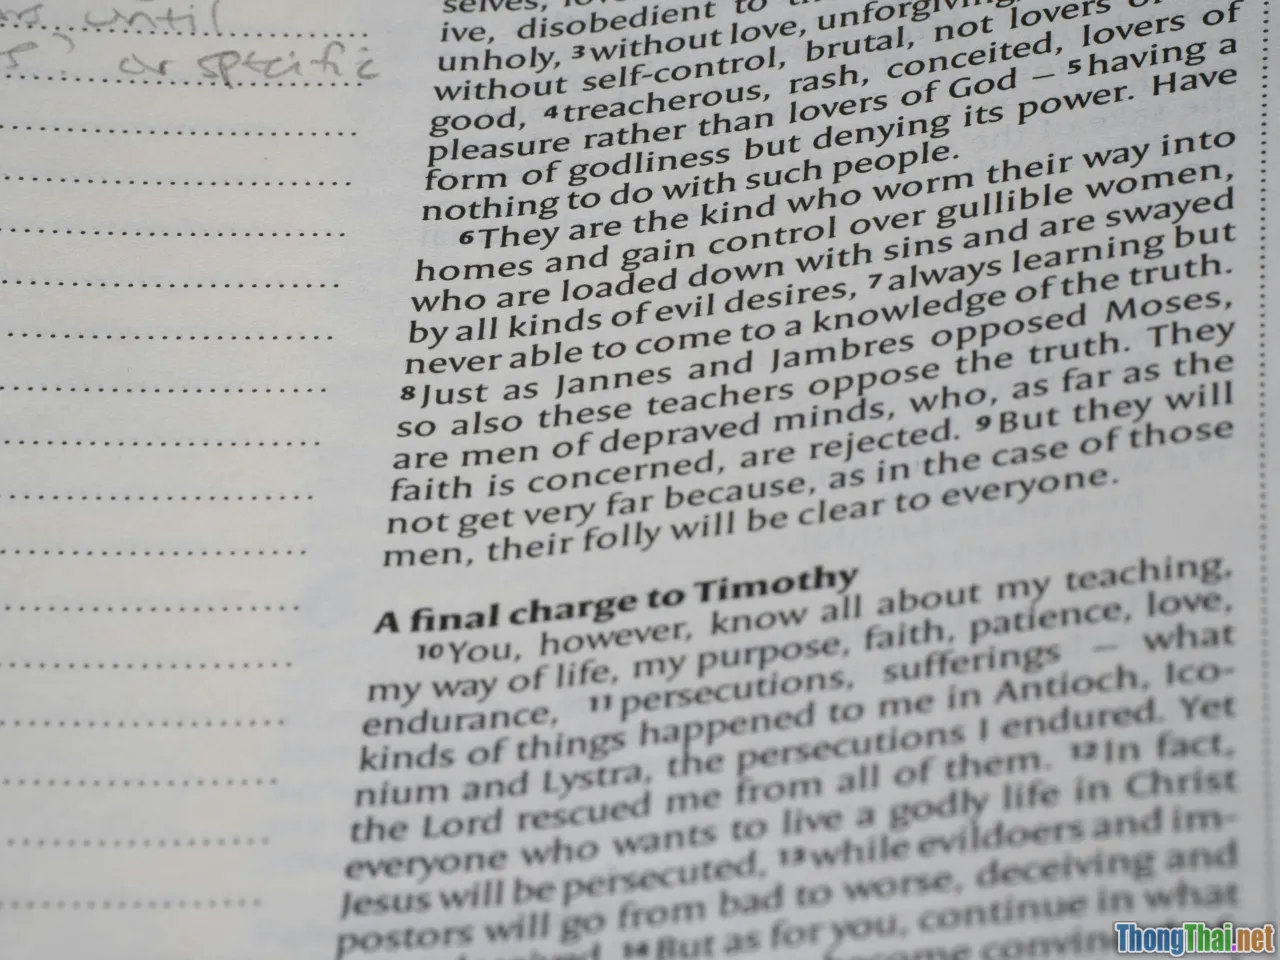 until
or specific
selves,
ive, disobedient to
unholy, 3without love, unforgiving,
without self-control, brutal, not lovers
good, 4treacherous, rash, conceited, lovers of
pleasure rather than lovers of God – 5having a
form of godliness but denying its power. Have
nothing to do with such people.
6They are the kind who worm their way into
homes and gain control over gullible women,
who are loaded down with sins and are swayed
by all kinds of evil desires, 7always learning but
never able to come to a knowledge of the truth.
8Just as Jannes and Jambres opposed Moses,
so also these teachers oppose the truth. They
are men of depraved minds, who, as far as the
faith is concerned, are rejected. 9But they will
not get very far because, as in the case of those
men, their folly will be clear to everyone.
A final charge to Timothy
10You, however, know all about my teaching,
my way of life, my purpose, faith, patience, love,
endurance, 11persecutions, sufferings – what
kinds of things happened to me in Antioch, Ico-
nium and Lystra, the persecutions I endured. Yet
the Lord rescued me from all of them. 12In fact,
everyone who wants to live a godly life in Christ
Jesus will be persecuted, 13while evildoers and im-
postors will go from bad to worse, deceiving and
14But as for you, continue in what
ThongThai.net